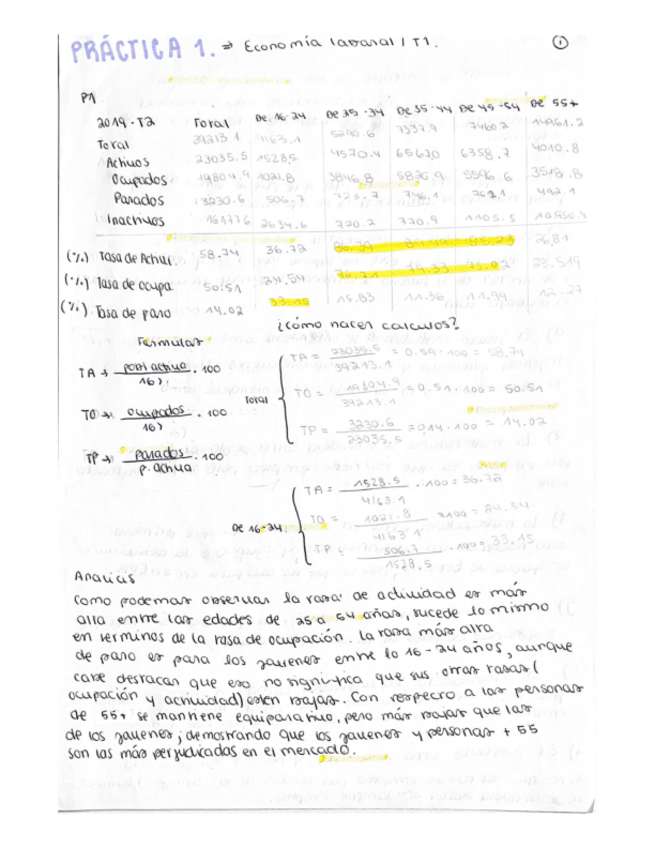 PRÁCTICA 1. ⇒ Economía laboral / T1. 1
P1
2019 - T2 Total De 16-24 De 25-34 De 35-44 De 45-54 De 55+
Total 39213.1 4163.1 5290.6 7337.9 7460.2 14961.2
Activos 23035.5 1528.5 4570.4 6567.0 6358.7 4010.8
Ocupados 19804.9 1021.8 3846.8 5826.9 5596.6 3518.8
Parados 3230.6 506.7 723.7 492.1
Inactivos 16177.6 2634.6 720.2 770.9 1105.5 10950.4
(%) Tasa de Activi. 58.74 36.72 85.23 26.81
(%) Tasa de ocupa. 50.51 24.54 75.02 23.519
(%) Tasa de paro 14.02 33.15 15.83 11.36 11.99 12.27
¿cómo hacer calculos?
Fórmulas
TA → pobl activa / 16> · 100
TO → ocupados / 16> · 100
TP → parados / p. activa · 100
Total
TA = 23035.5 / 39213.1 = 0.59 · 100 = 58.74
TO = 19804.9 / 39213.1 = 0.51 · 100 = 50.51
TP = 3230.6 / 23035.5 = 0.14 · 100 = 14.02
De 16-24
TA = 1528.5 / 4163.1 · 100 = 36.72
TO = 1021.8 / 4163.1 × 100 = 24.54
TP = 506.7 / 1528.5 · 100 = 33.15
Analisis
Como podemos observar la tasa de actividad es más
alta entre las edades de 25 a 54 años, sucede lo mismo
en terminos de la tasa de ocupación. La tasa más alta
de paro es para los jovenes entre lo 16 - 24 años, aunque
cabe destacar que eso no significa que sus otras tasas (
ocupación y actividad) esten bajas. Con respecto a las personas
de 55+ se mantiene equiparativo, pero más bajas que las
de los jovenes; demostrando que los jovenes y personas + 55
son los más perjudicados en el mercado.